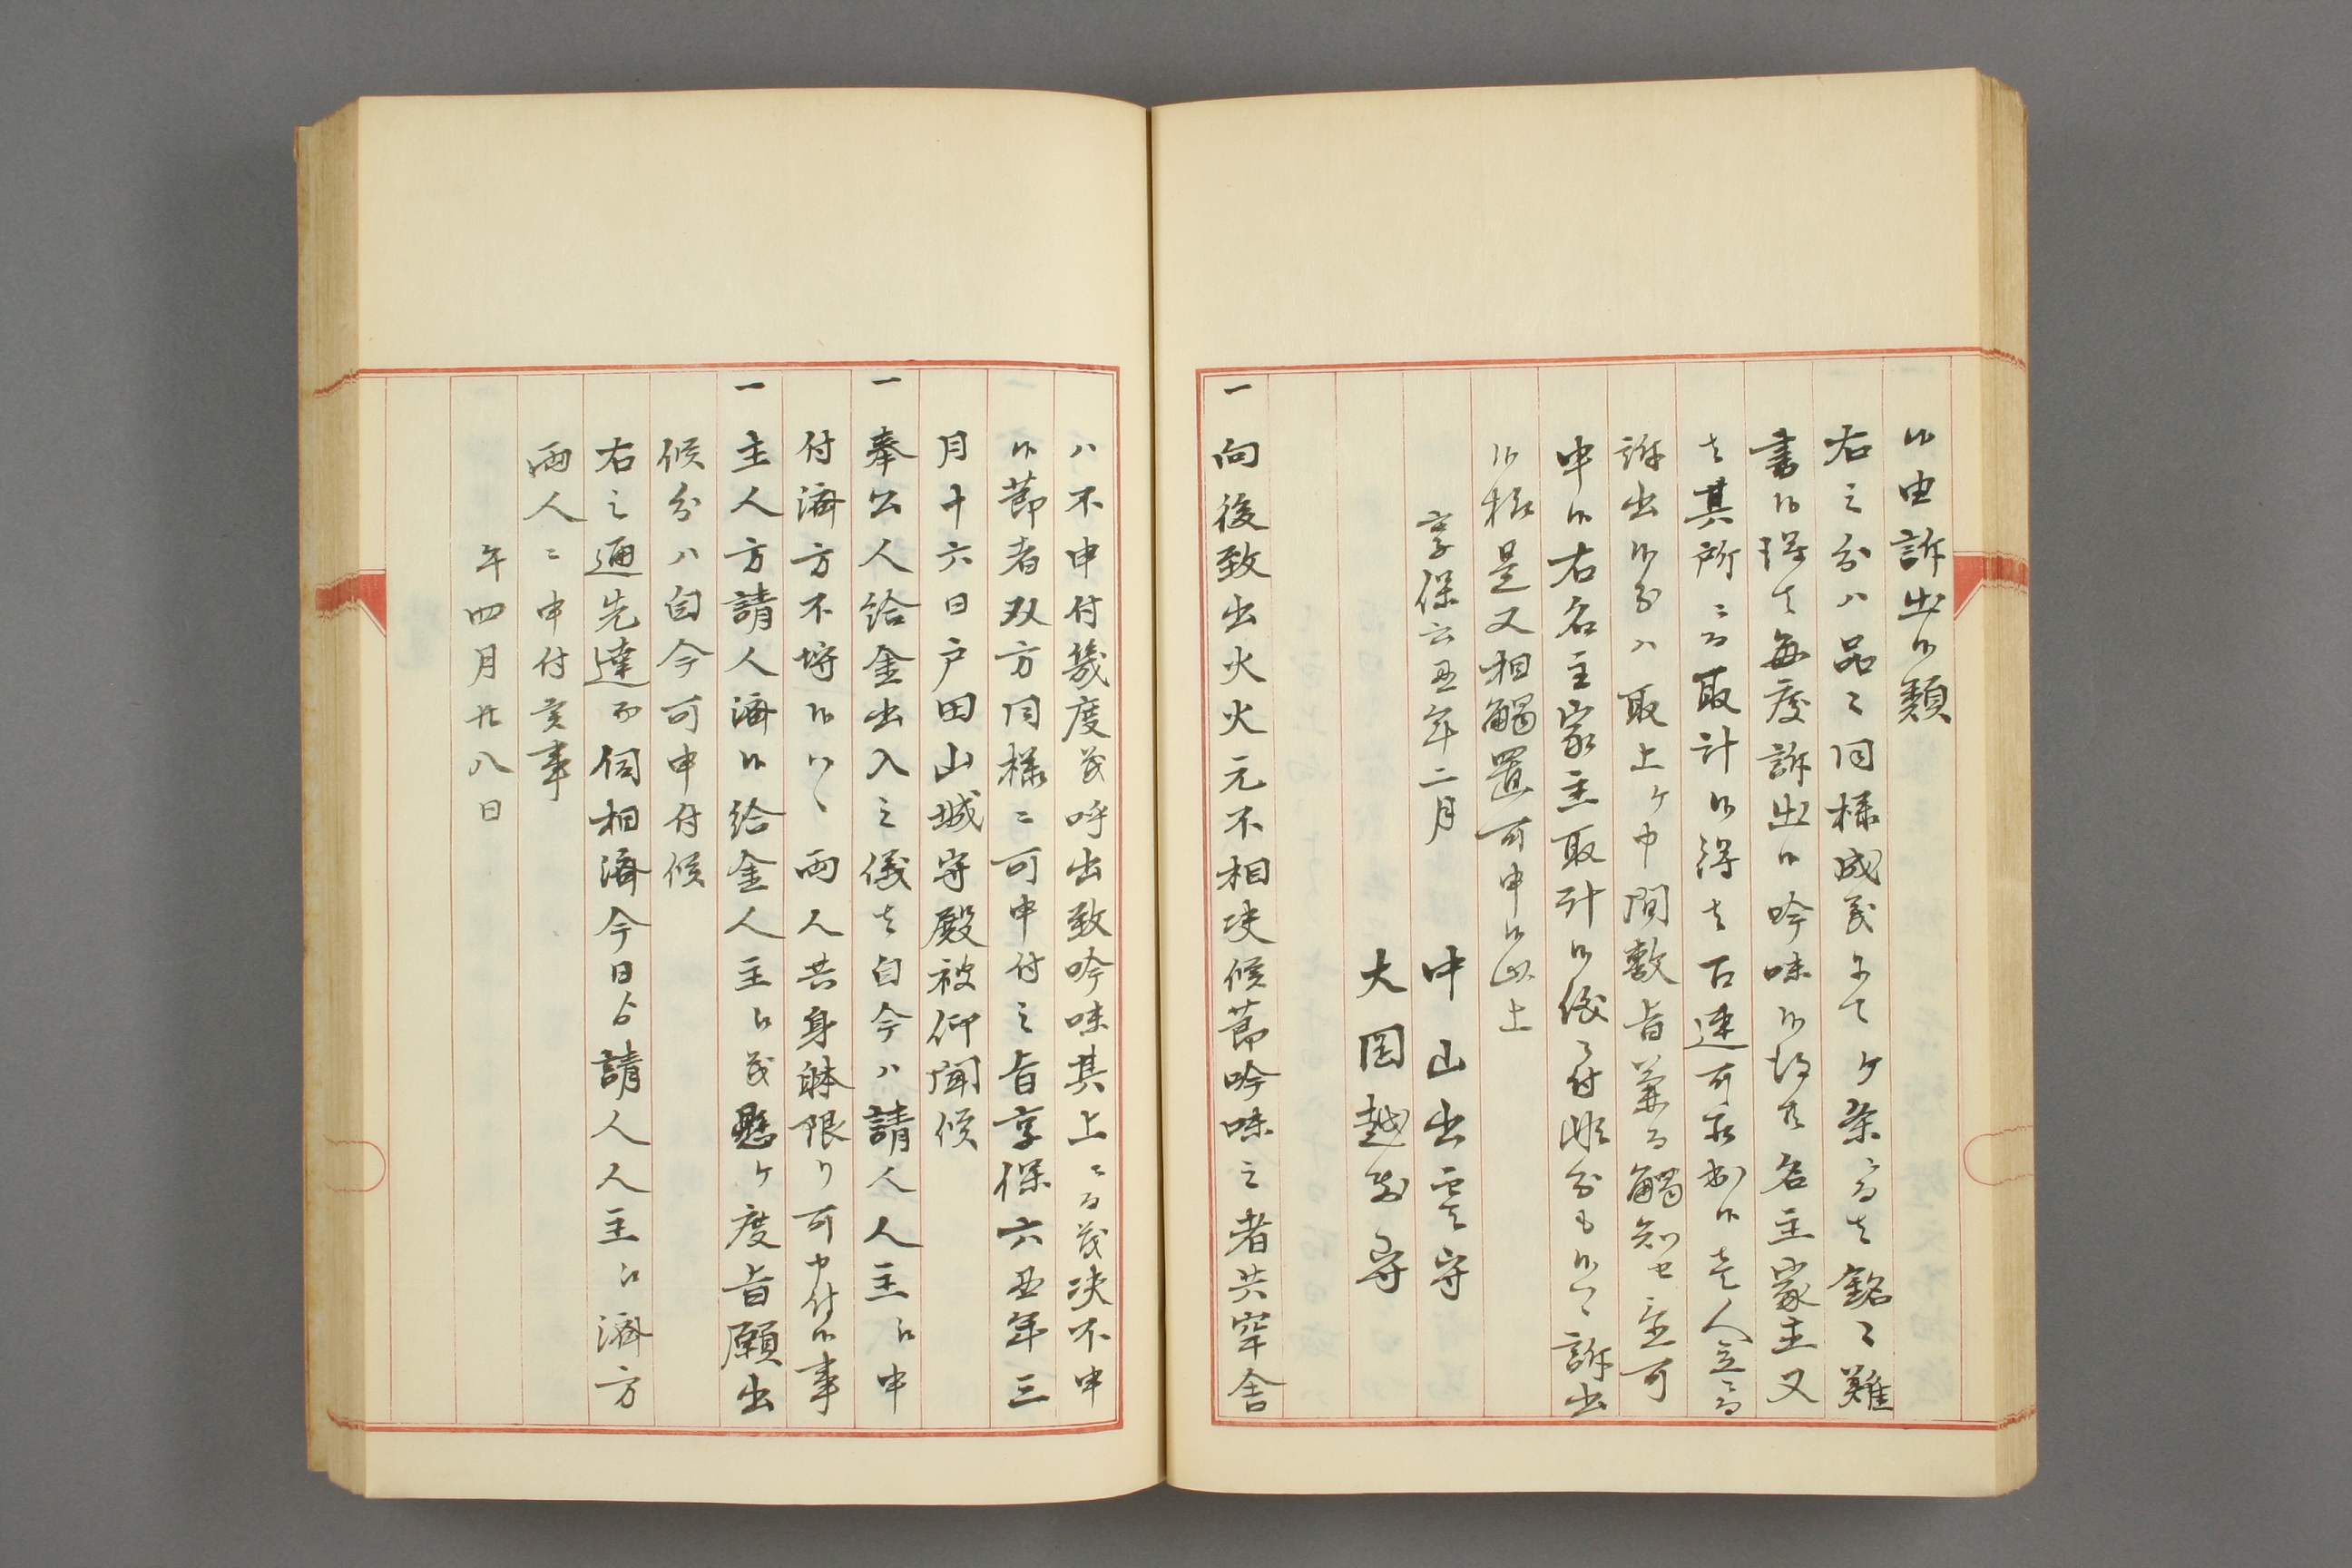 候由訴出候類
右之分ハ品々同様成義ニて ケ条ニ而者銘々難
書候得共毎度訴出候吟味候得共名主家主又
者其所ニ而取計候得者右違可相知候茂人立ニ而
訴出候分ハ取上ケ申間敷旨兼而觸知せ置可
申候右名主家主取計候儀ニ付此分も候ハヽ訴出
候様是又相觸置可申候以上
享保六丑年二月 中山出雲守
大岡越前守
一 向後致出火火元不相决候節吟味之者共牢舎
ハ不申付幾度茂呼出致吟味其上ニ而茂决不申
候節者双方同様ニ可申付之旨享保六丑年三
月十六日戸田山城守殿被仰聞候
一 奉公人給金出入之儀者自今ハ請人人主江申
付済方不埒候ハヽ両人共身躰限り可申付候事
一 主人方請人済候給金人主江茂懸ケ度旨願出
候分ハ自今可申付候
右之通先達而伺相済今日ゟ請人人主江済方
両人ニ申付候事
午四月廿八日